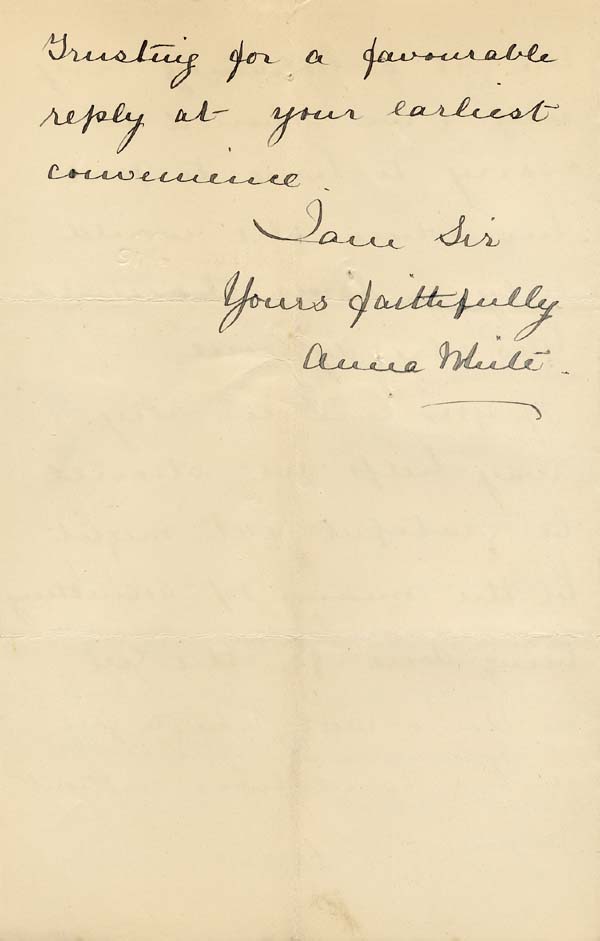 Trusting for a favourable
reply at your earliest
convenience.
I am Sir
Yours faithfully
Anna White.